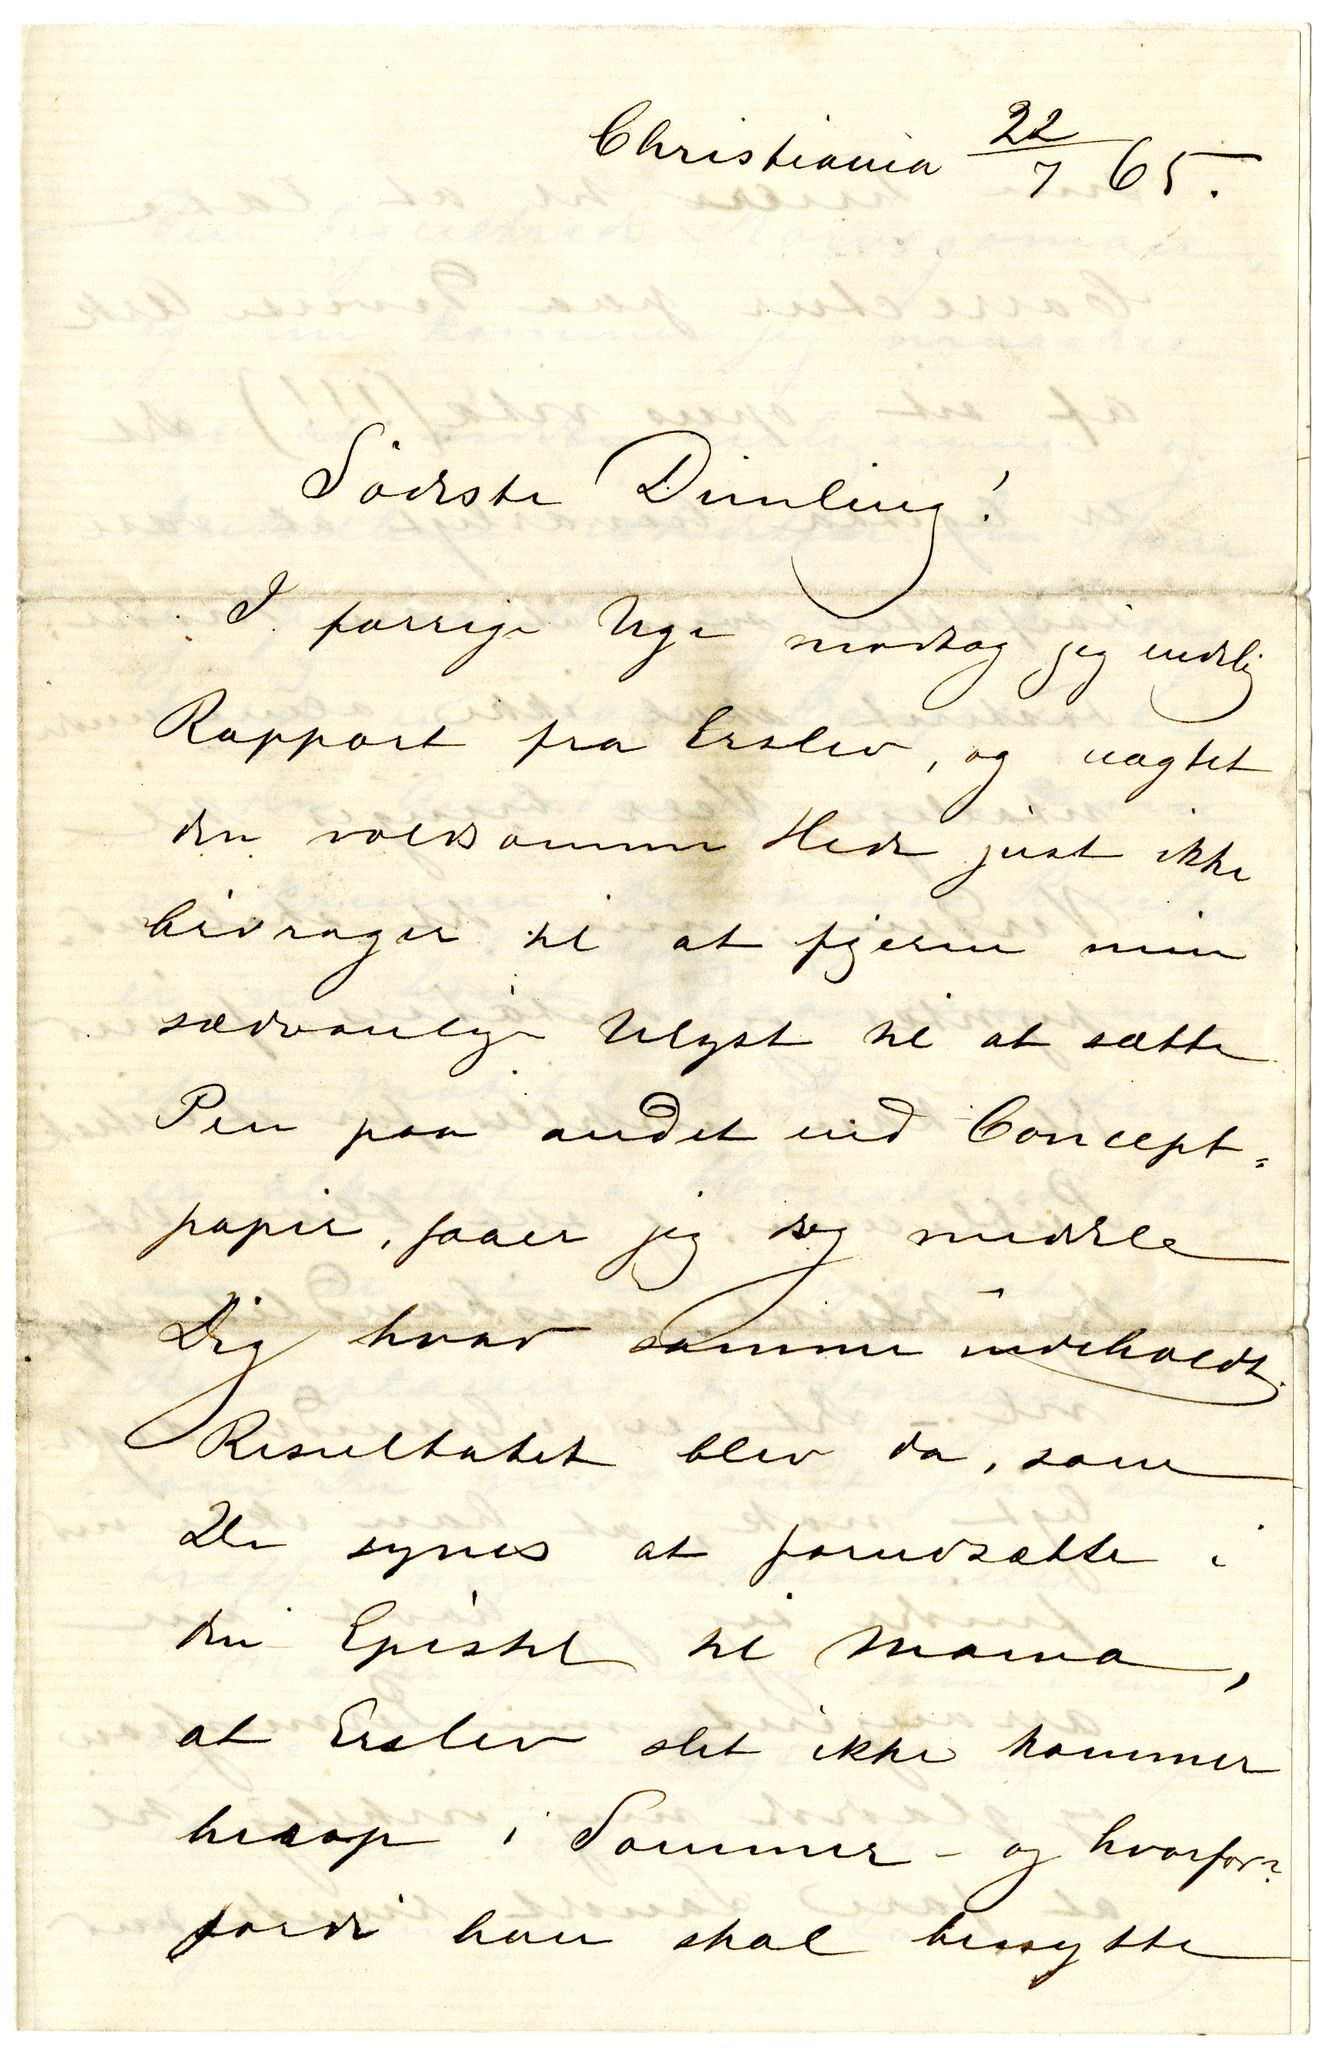 Christiania 22/7 65.
Sødeste Dimling!
I forrige Uge modtog jeg endelig
Rapport fra Erslev, og uagtet
den voldsomme Hede just ikke
bidrager til at fjerne min
sædvanlige Ulyst til at sætte
Pen paa andet end Concept=
papir, faaer jeg meddele
Dig hvad samme indeholdt.
Resultatet blev da, som
De synes at forudsætte i
din Epistel til Mama,
at Erslev slet ikke kommer
herop i Sommer - og hvorfor?
fordi han skal benytte